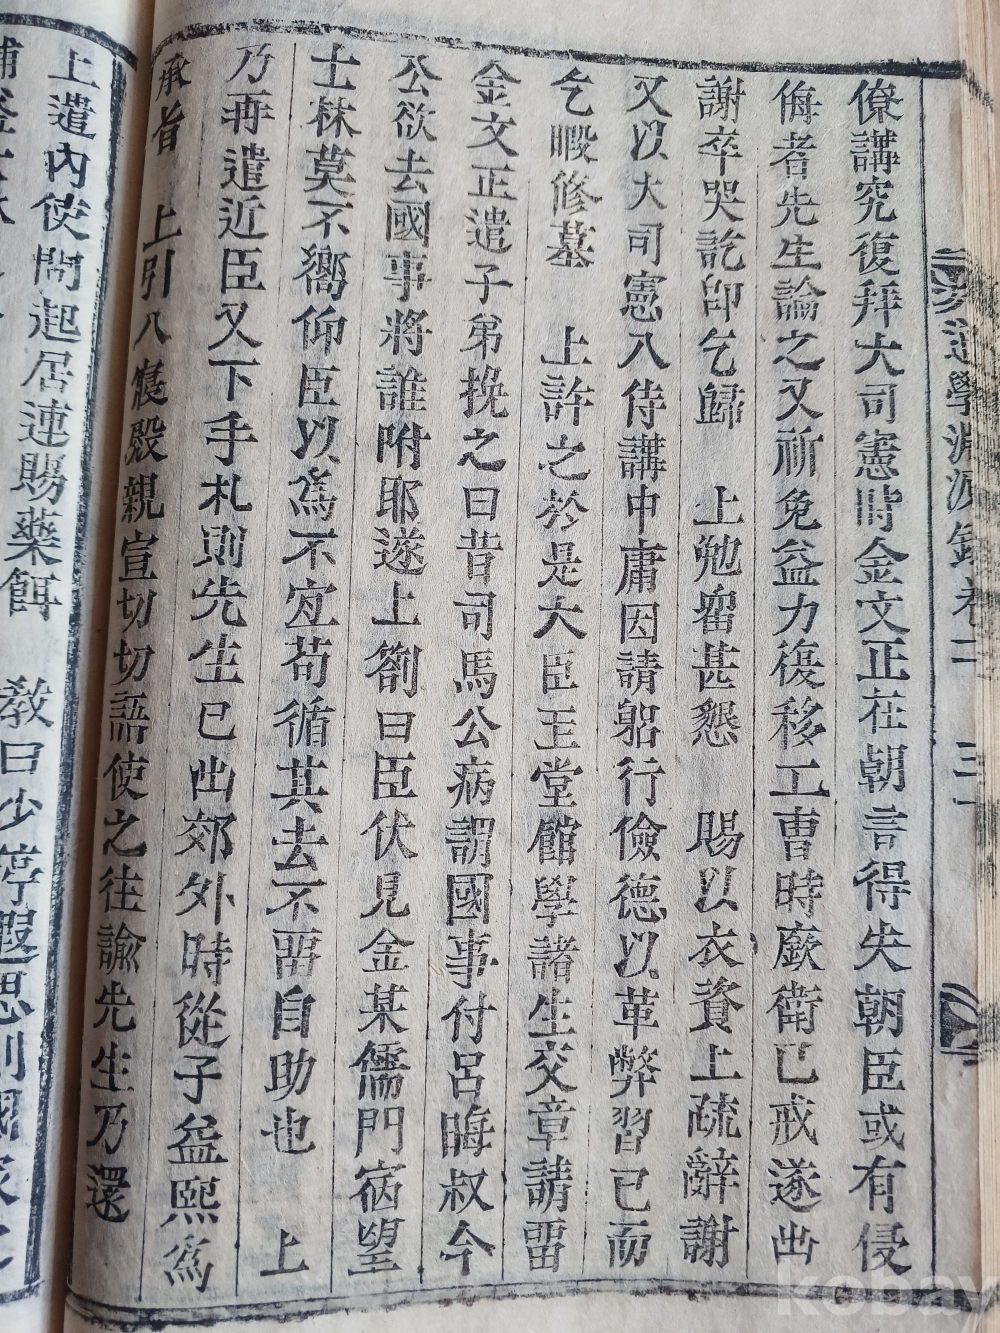 僚講究復拜大司憲時金文正在朝言得失朝臣或有侵
侮者先生論之又祈免益力復移工曹時廞衛已戒遂出
謝卒哭訖卽乞歸 上勉留甚懇 賜以衣資上疏辭謝
又以大司憲入侍講中庸因請躬行儉德以革弊習已而
乞暇修墓 上許之於是大臣玉堂館學諸生交章請畱
金文正遣子弟挽之曰昔司馬公病謂國事付呂晦叔今
公欲去國事將誰附耶遂上劄曰臣伏見金某儒門宿望
士林莫不嚮仰臣以爲不宜苟循其去不畱自助也 上
乃再遣近臣又下手札則先生已出郊外時從子益熙爲
承旨 上引入寢殿親宣切切語使之往諭先生乃還
上遣內使問起居連賜藥餌 敎曰少停遐思則國家之
道學淵源錄卷二